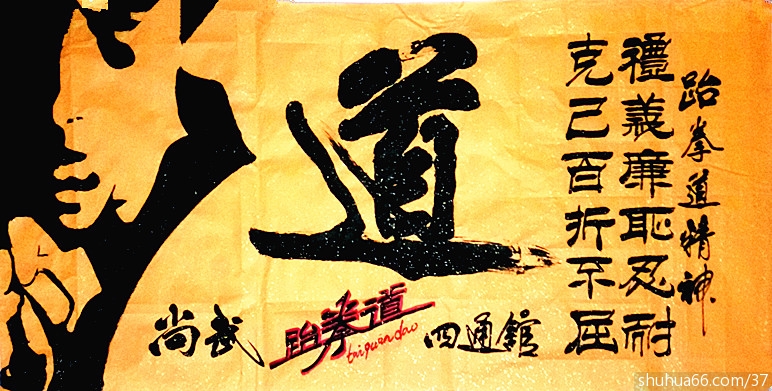 跆拳道精神
禮義廉恥忍耐
克己百折不屈
道
尚武 跆拳道 四通館
taiquandao
shuhua66.com/37